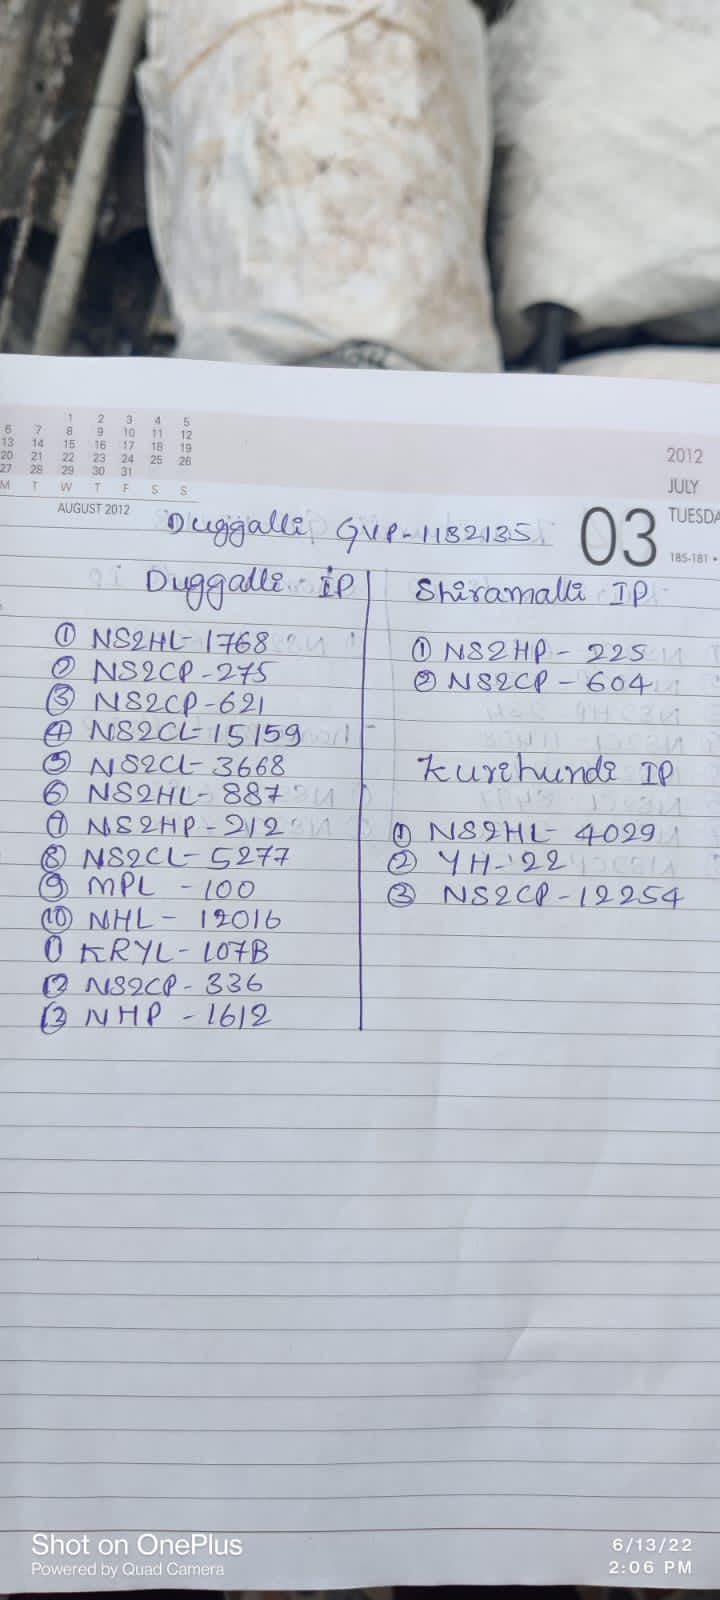 1 2 3 4 5
6 7 8 9 10 11 12
13 14 15 16 17 18 19
20 21 22 23 24 25 26
27 28 29 30 31
M T W T F S S
AUGUST 2012
2012
JULY
03 TUESDA
185-181 •
Duggalli GVP-1182135
Duggalli IP
① NS2HL-1768
② NS2CP-275
③ NS2CP-621
④ NS2CL-15159
⑤ NS2CL-3668
⑥ NS2HL-887
⑦ NS2HP-212
⑧ NS2CL-5277
⑨ MPL -100
⑩ NHL- 12016
⑪ KRYL-107B
⑫ NS2CP-336
⑬ NHP -1612
Shiramalli IP
① NS2HP-225
② NS2CP-604
Kurihundi IP
① NS2HL-4029
② YH-'22
③ NS2CP-12254
Shot on OnePlus
Powered by Quad Camera
6/13/22
2:06 PM